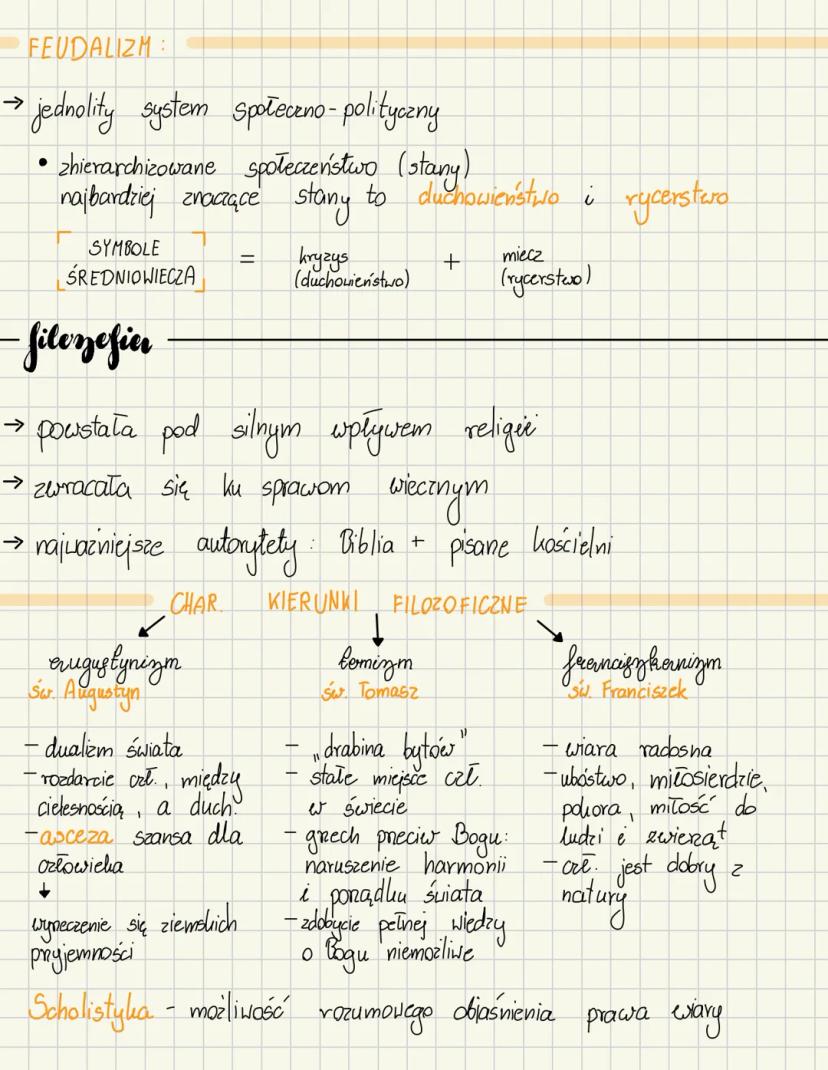 FEUDALIZM:
→ jednolity system społeczno-polityczny
• zhierarchizowane społeczeństwo (stany)
najbardziej znaczące stany to duchowieństwo i rycerstwo
SYMBOLE
ŚREDNIOWIECZA
= kryzys + miecz
(duchowieństwo) (rycerstwo)
filozofia
→ powstała pod silnym wpływem religii
→ zwracała się ku sprawom wiecznym
→ najważniejsze autorytety: Biblia + pisane kościelni
CHAR. KIERUNKI FILOZOFICZNE
augustynizm
św. Augustyn
- dualizm świata
- rozdarcie czł., między
cielesnością, a duch.
- asceza szansa dla
człowieka
↓
wyrzeczenie się ziemskich
przyjemności
tomizm
św. Tomasz
- „drabina bytów"
- stałe miejsce czł.
w świecie
- grzech przeciw Bogu:
naruszenie harmonii
i porządku świata
- zdobycie pełnej wiedzy
o Bogu niemożliwe
franciszkanizm
św. Franciszek
- wiara radosna
- ubóstwo, miłosierdzie,
pokora, miłość do
ludzi i zwierząt
- czł. jest dobry z
natury
Scholistyka - możliwość rozumowego objaśnienia prawa wiary